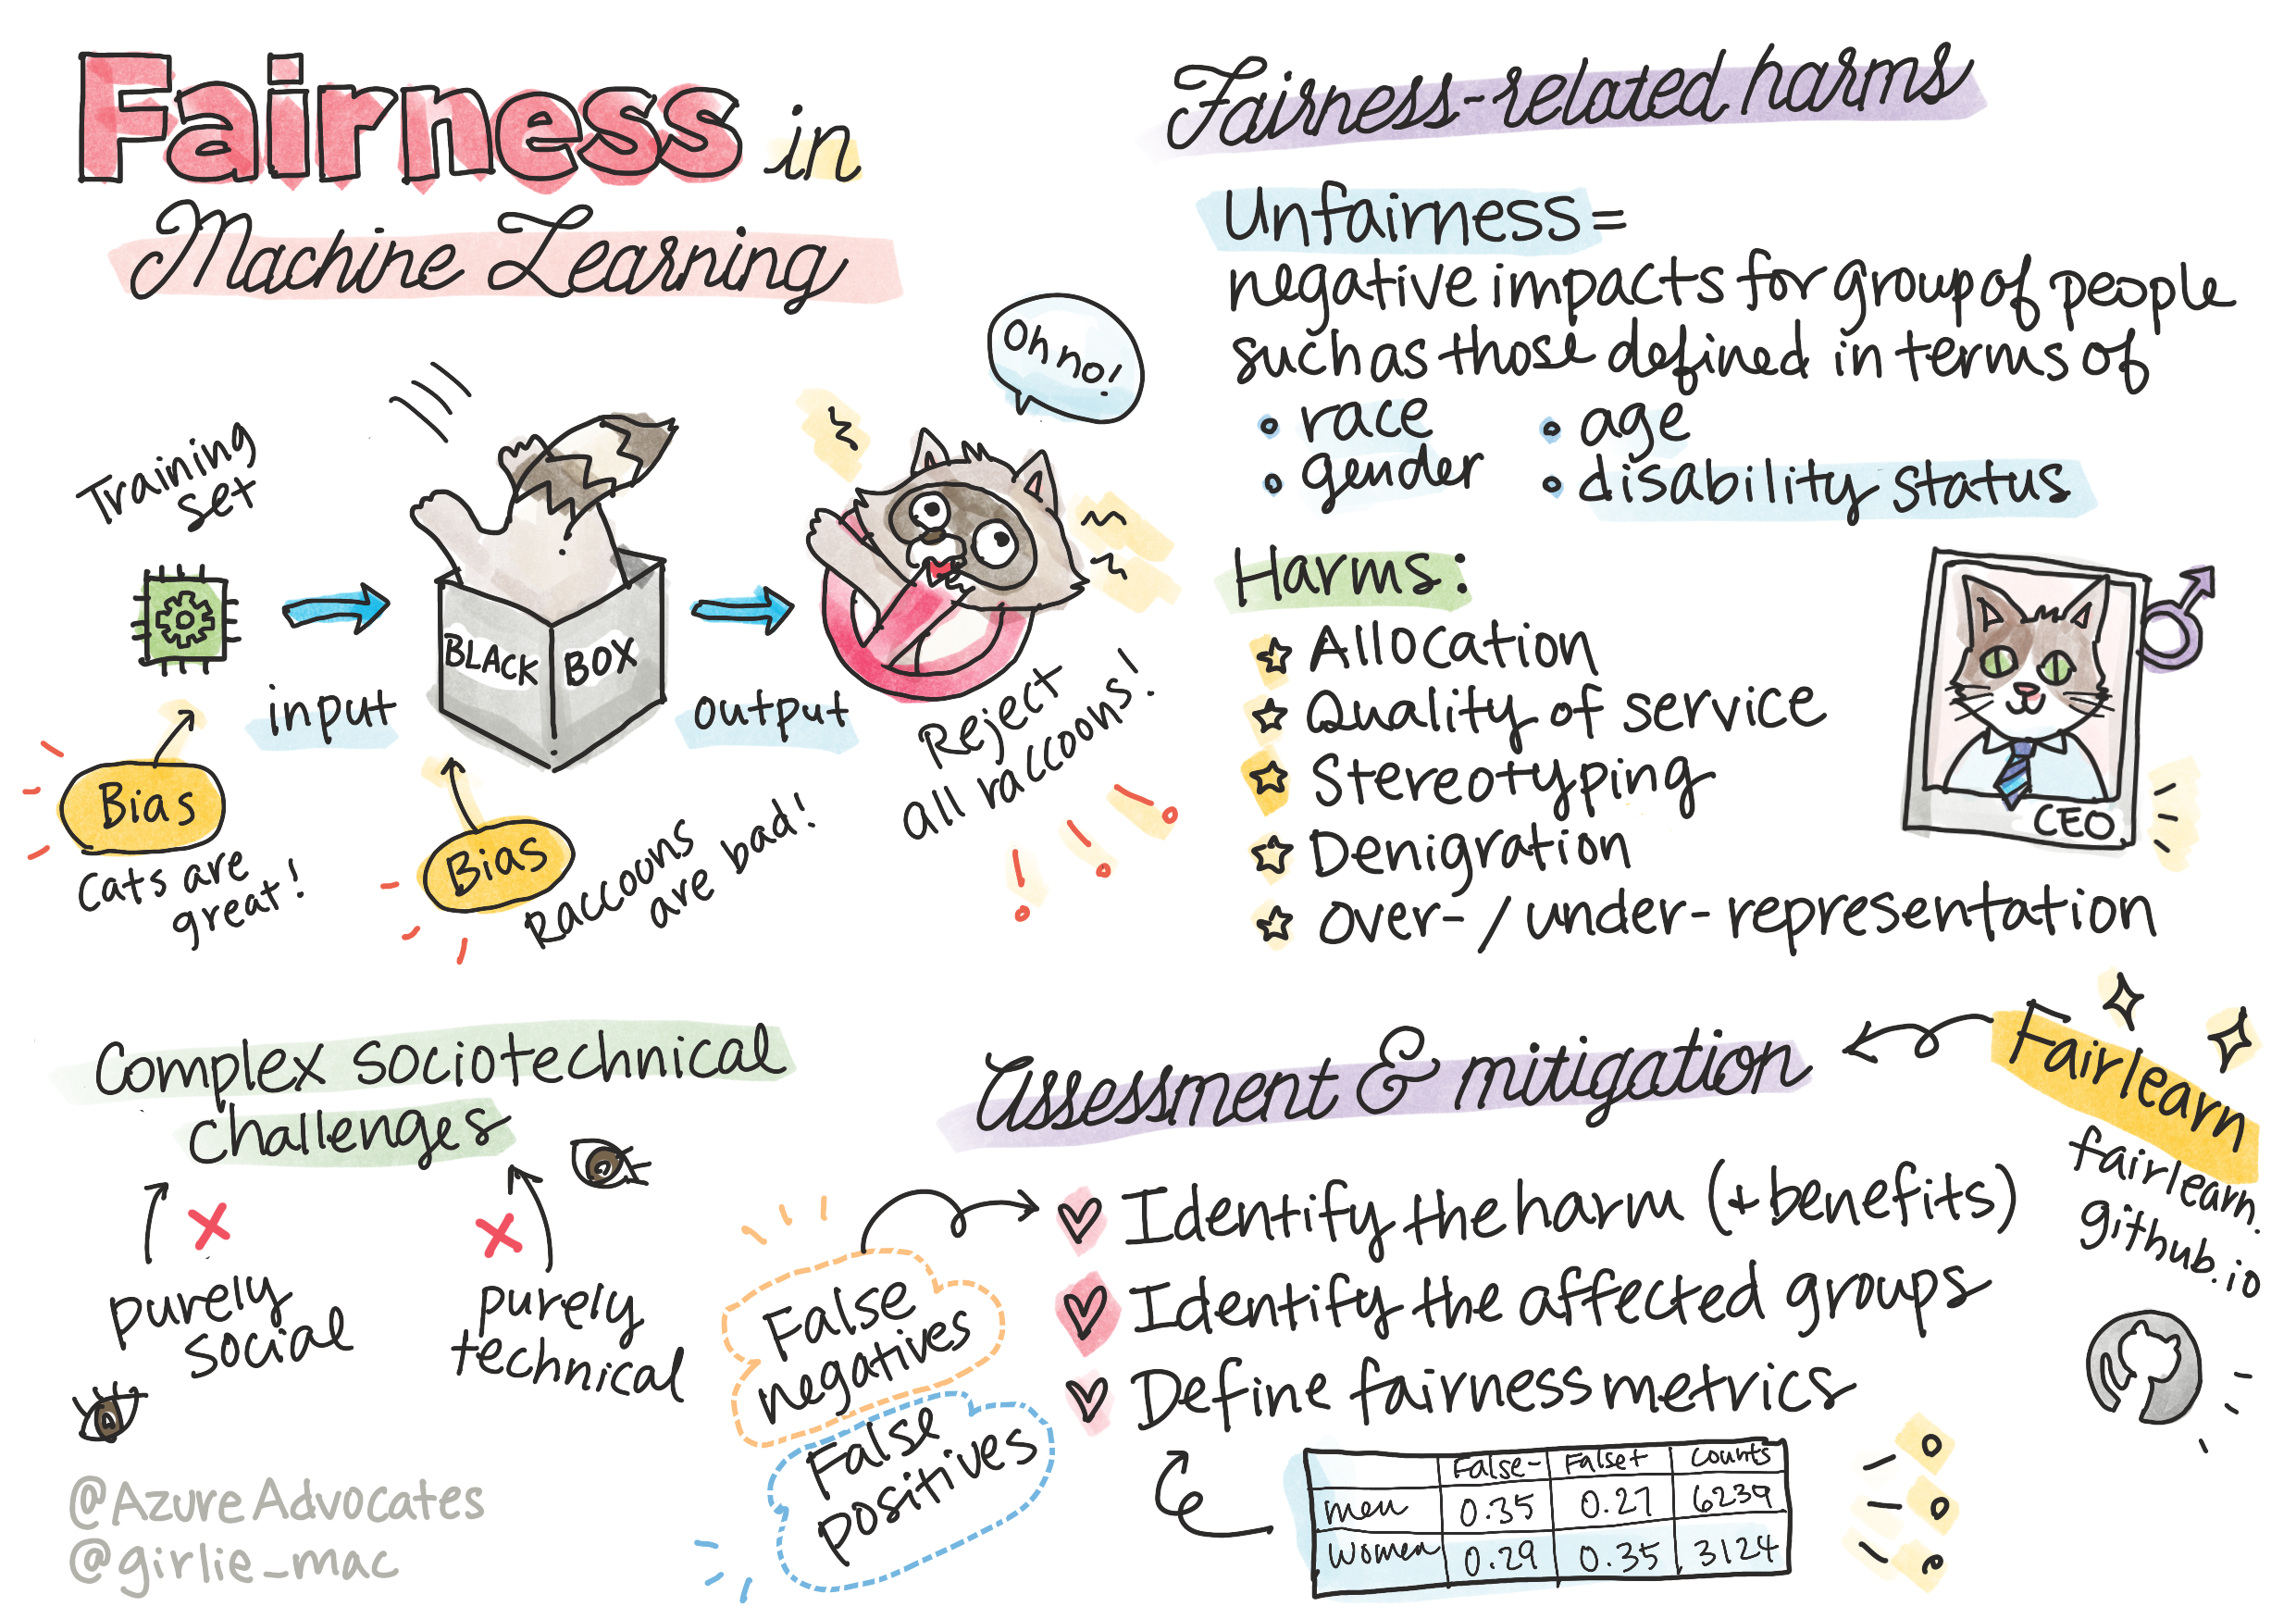 Fairness in
Machine Learning
Oh no!
Training
set
BLACK BOX
input
output
Reject
all raccoons!
Bias
Cats are
great!
Bias
Raccoons
are bad!
Fairness-related harms
Unfairness =
negative impacts for group of people
such as those defined in terms of
• race
• age
• gender
• disability status
Harms:
Allocation
Quality of service
Stereotyping
Denigration
over- / under- representation
CEO
Complex sociotechnical
challenges
purely
social
purely
technical
@AzureAdvocates
@girlie_mac
Assessment & mitigation
Fairlearn
fairlearn.
github.io
Identify the harm (+ benefits)
Identify the affected groups
Define fairness metrics
False
negatives
False
positives
False- False+ counts
men 0.35 0.27 6239
women 0.29 0.35 3124